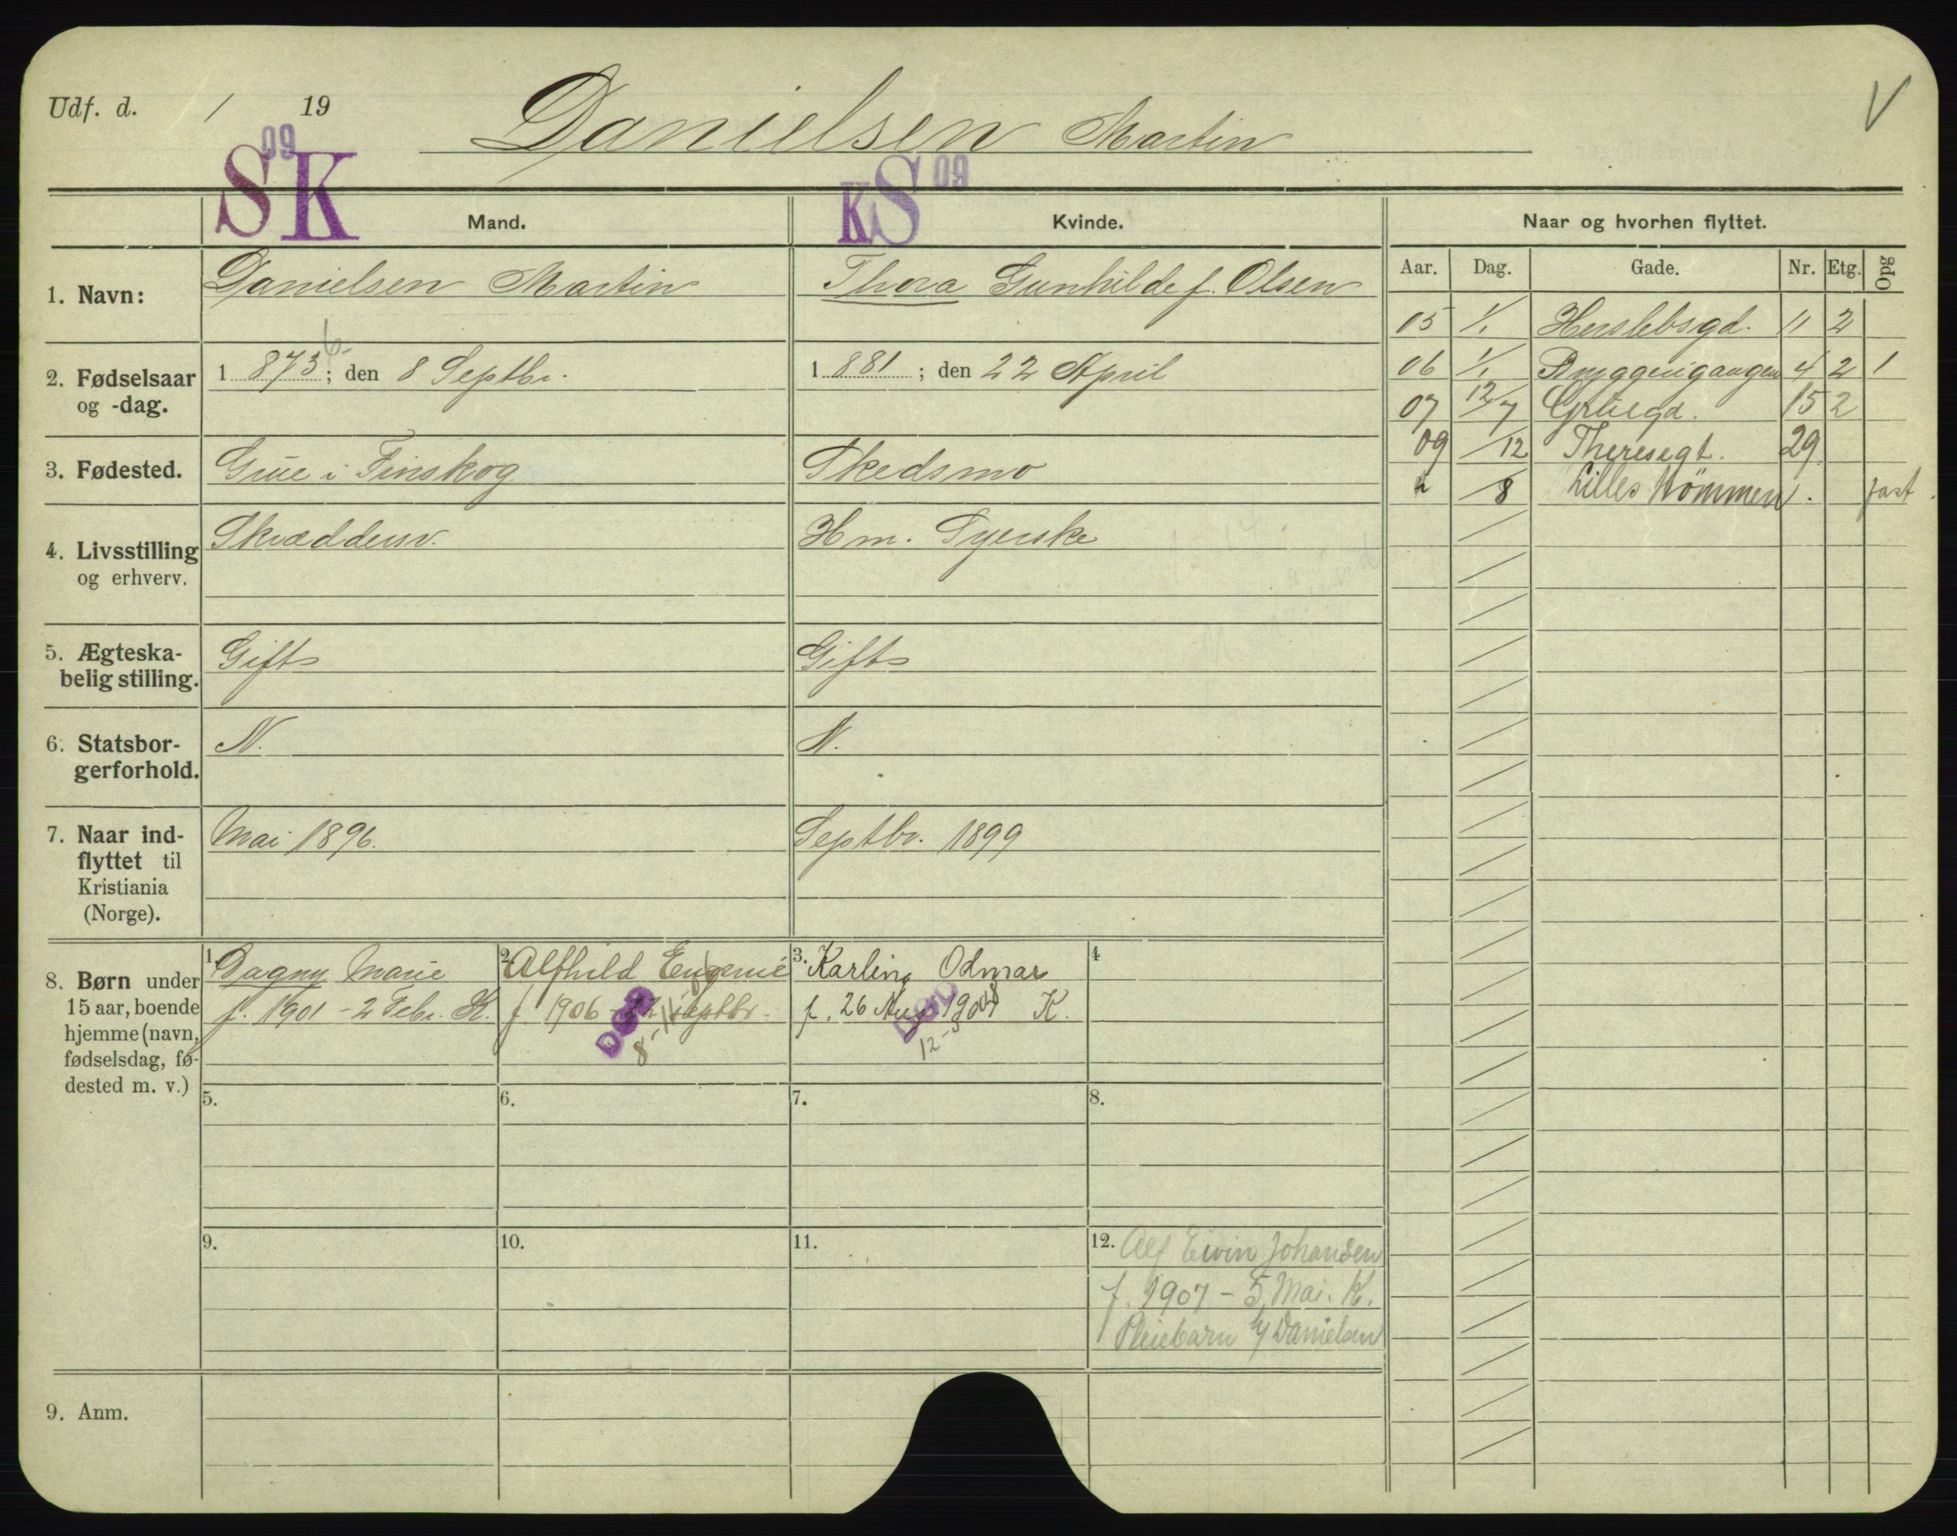 Udf. d. / 19
Danielsen Martin
V
SK 09
KS 09
Mand.
Kvinde.
Naar og hvorhen flyttet.
Aar. Dag. Gade. Nr. Etg. Opg
1. Navn: Danielsen Martin
Thora Gunhilde f. Olsen
05 1/1 Herslebsgd. 11 2
06 1/1 Bryggerigangen 4 2 1
07 12/7 Grüegd. 15 2
09 /12 Theresegt. 29
" /8 Lilles Tømmen.
2. Fødselsaar
og -dag.
1 873; den 8 Septbr.
6
1 881; den 22 April
3. Fødested. Grue i Finskog
Skedsmo
4. Livsstilling
og erhverv.
Skræddersv.
Hm. Syerske
5. Ægteska-
belig stilling.
Gift
Gift
6. Statsbor-
gerforhold.
N.
N.
7. Naar ind-
flyttet til
Kristiania
(Norge).
Mai 1896.
Septbr. 1899
8. Børn under
15 aar, boende
hjemme (navn,
fødselsdag, fø-
dested m. v.)
1. Dagny Marie
f. 1901 - 2 Febr. K.
2. Alfhild Eugenie
f 1906 - 22 Septbr.
DØD
3. Karling Odmar
f. 26 Aug 1908 K.
DØD
4
5.
6.
7.
8.
9.
10.
11.
12. Alf Eivin Johansen
f. 1907 - 5 Mai. K.
Pleiebarn h/ Danielsen
9. Anm.